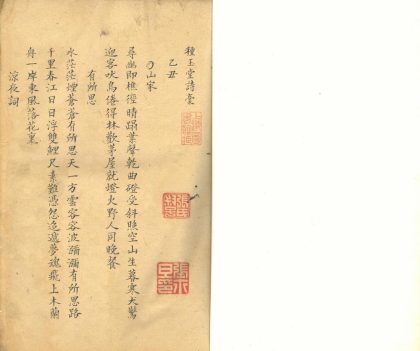 種玉堂詩稾
乙丑
山家
尋幽即樵徑晴蹋葉聲乾曲磴受斜照空山生暮寒犬驚
迎客吠鳥倦得林歡茅屋就燈火野人同晚餐
有所思
水茫茫煙蒼蒼有所思天一方雲容容波瀰瀰有所思路
千里春江日日浮雙鯉尺素難憑怨迢遞夢魂飛上木蘭
舟一岸東風落花裏
涼夜詞